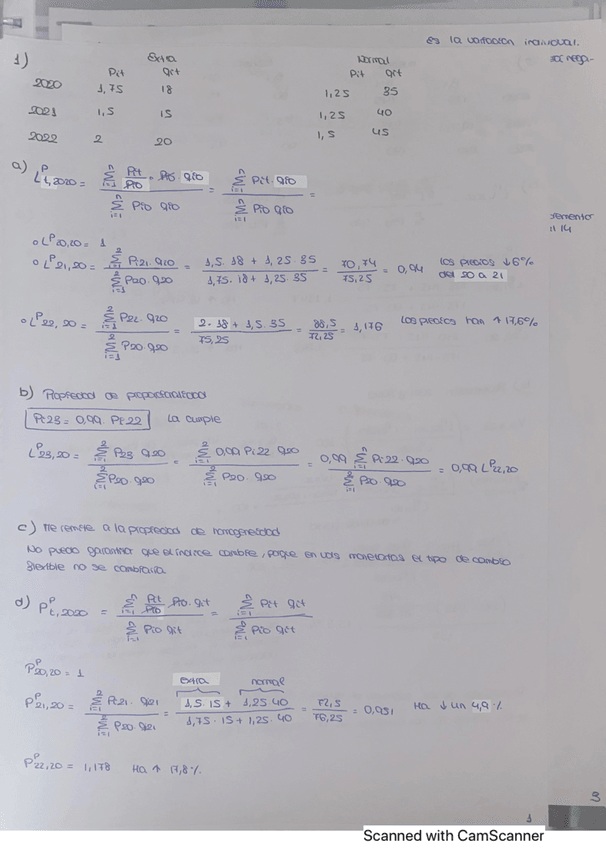 es la variación individual.
1) Extra Normal
Pit qit Pit qit
2020 1,75 18 1,25 35
2021 1,5 15 1,25 40
2022 2 20 1,5 45
a) L^P_{t,2020} = \frac{\sum_{i=1}^{n} \frac{Pit}{Pi0} · Pi0 qi0}{\sum_{i=1}^{n} Pi0 qi0} = \frac{\sum_{i=1}^{n} Pit · qi0}{\sum_{i=1}^{n} Pi0 qi0} =
o L^P_{20,20} = 1
o L^P_{21,20} = \frac{\sum_{i=1}^{2} Pi21 · q20}{\sum_{i=1}^{2} P20 · q20} = \frac{1,5 · 18 + 1,25 · 35}{1,75 · 18 + 1,25 · 35} = \frac{70,74}{75,25} = 0,94 los precios ↓6%
del 20 a 21
o L^P_{22,20} = \frac{\sum_{i=1}^{2} P22 · q20}{\sum_{i=1}^{2} P20 · q20} = \frac{2 · 18 + 1,5 · 35}{75,25} = \frac{88,5}{72,25} = 1,176 Los precios han ↑ 17,6%
b) Propiedad de proporcionalidad
Pi23 = 0,99 · Pi22 La cumple
L^P_{23,20} = \frac{\sum_{i=1}^{2} P23 q20}{\sum_{i=1}^{2} P20 · q20} = \frac{\sum_{i=1}^{2} 0,99 Pi22 q20}{\sum_{i=1}^{2} P20 · q20} = \frac{0,99 \sum_{i=1}^{n} Pi22 · q20}{\sum_{i=1}^{2} P20 q20} = 0,99 L^P_{22,20}
c) Me remite a la propiedad de homogeneidad
No puedo garantizar que el índice cambie, porque en uds monetarias el tipo de cambio
flexible no se cambiaría.
d) P^P_{t,2020} = \frac{\sum_{i=1}^{n} \frac{Pit}{Pi0} Pi0 · qit}{\sum_{i=1}^{n} Pi0 qit} = \frac{\sum_{i=1}^{n} Pit qit}{\sum_{i=1}^{n} Pi0 qit}
P^P_{20,20} = 1
extra normal
P^P_{21,20} = \frac{\sum_{i=1}^{2} Pi21 · qi21}{\sum_{i=1}^{2} P20 · qi21} = \frac{1,5 · 15 + 1,25 · 40}{1,75 · 15 + 1,25 · 40} = \frac{72,5}{76,25} = 0,951 Ha ↓ un 4,9%
P^P_{22,20} = 1,178 Ha ↑ 17,8%.
3
1
Scanned with CamScanner